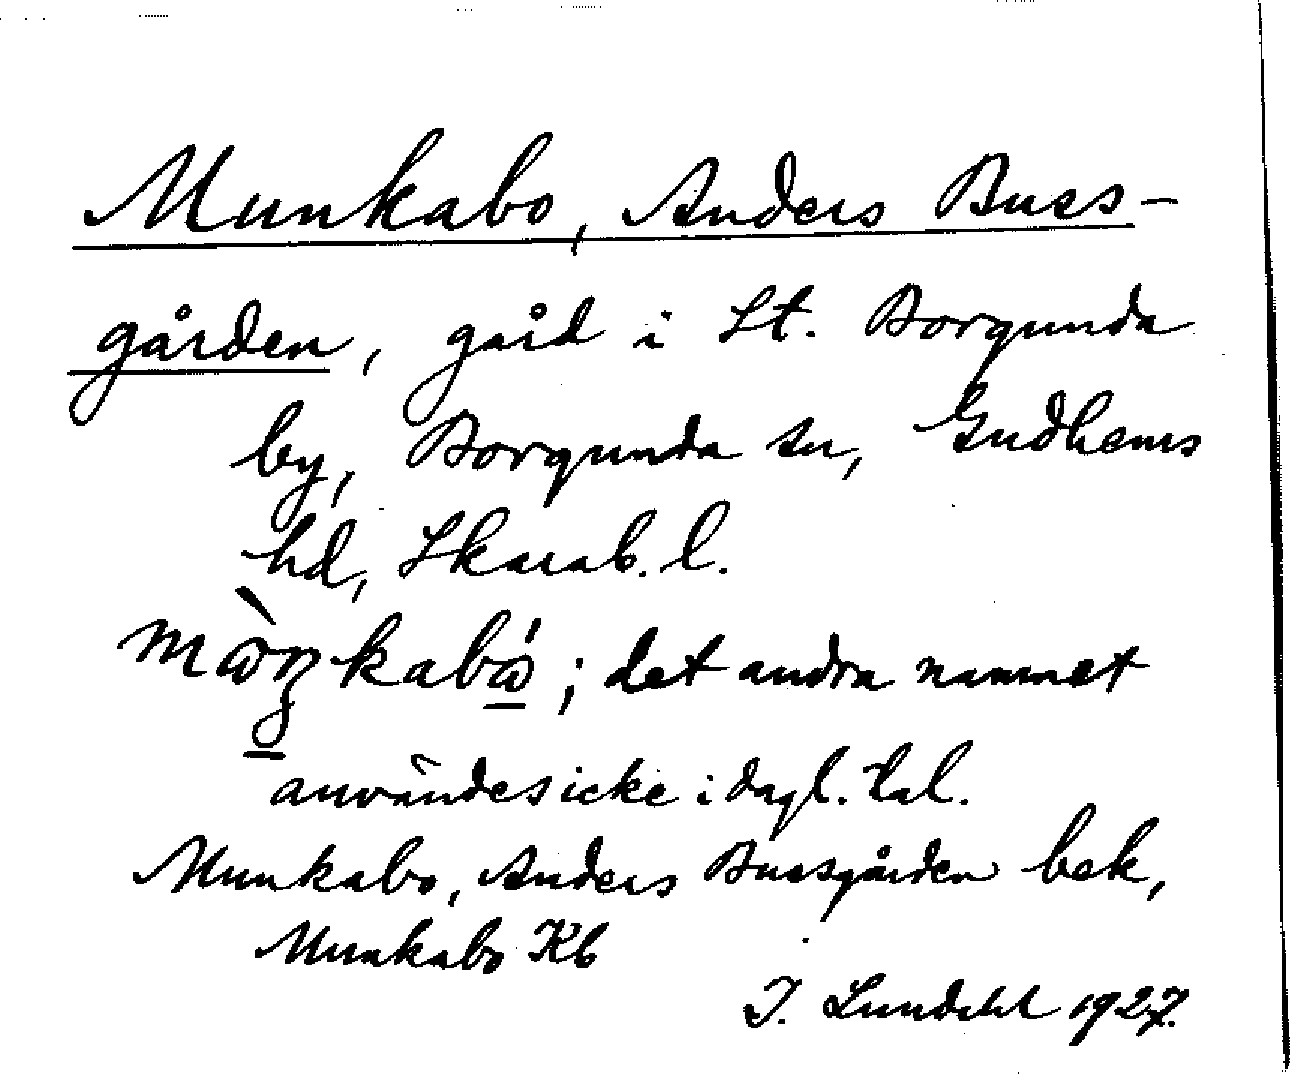 Munkabo, Anders Bues-
gården, gård i St. Borgunda
by, Borgunda sn, Gudhems
hd, Skarab. l.
det andra namnet
användes icke i dagl. tal.
Munkabo, Anders Buesgården bek,
Munkabo Kb
I. Lundahl 1927.